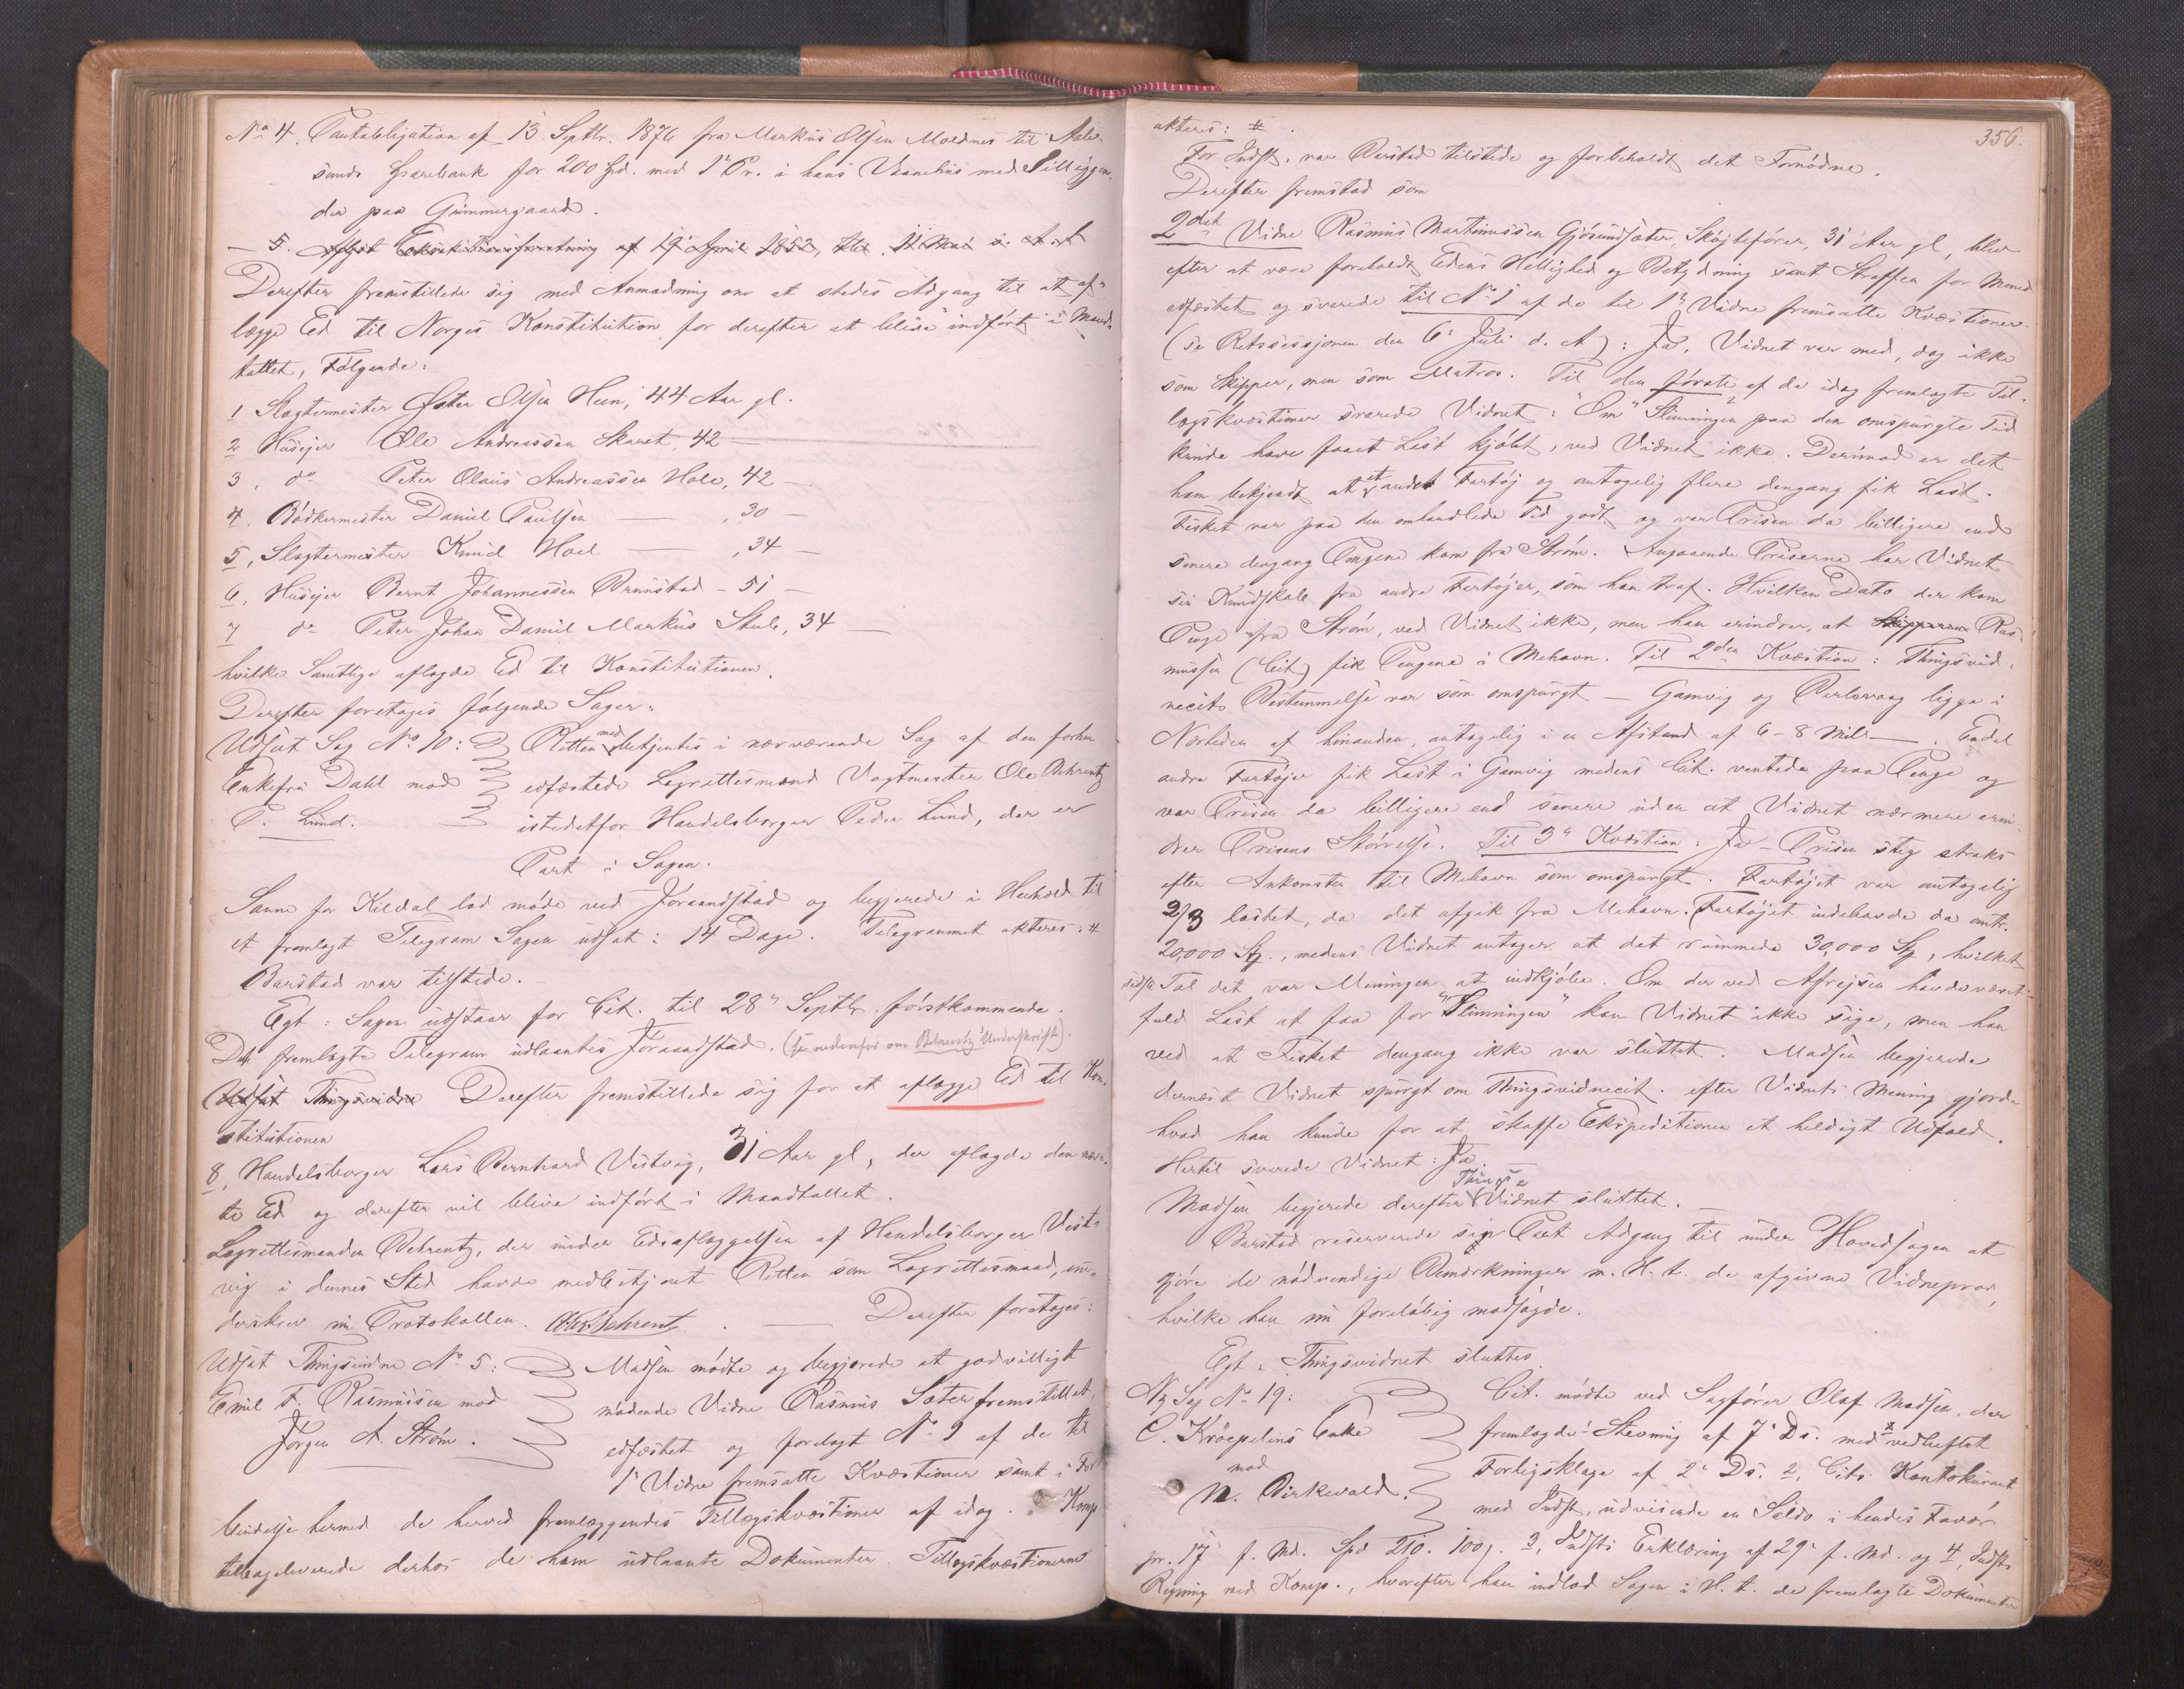 No 4. Pantobligation af 13 Septbr. 1876 fra Markus Olsen Moldnes til Aale-
sunds Sparebank for 200 Spd. med 1ste Pr. i hans Vaanehus med Tilliggen-
der paa Grimmergaard.
— 5. Aflyst Exekutionsforretning af 19 April 1852, thl. 11 Mai s. A.
Derefter fremstillede sig med Anmodning om at stedes Adgang til at af-
lægge Ed til Norges Konstitution for derefter at blive indført i Mand-
tallet, Følgende:
1 Slagtermester Olsen 44 Aar gl.
2 Huseier Ole Andreassen Skaret, 42 —
3, do Peter Olaus Andreassen Hole, 42 —
4, Bødkermester Daniel Paulsen — , 30 —
5, Slagtermester Knud Hoel — , 34 —
6, Husejer Bernt Johannessen Brunstad - 51 —
7 do Peter Johan Daniel Markus Skule, 34 —
hvilke Samtlige aflagde Ed til Konstitutionen.
Derefter foretages følgende Sager:
Udsat Sag No 10: Retten med betjentes i nærværende Sag af den forhen
Enkefru Dahl mod edfæstede Lagrettesmand Vagtmester Ole Behrentz
P. Lund. istedetfor Handelsborger Peder Lund, der er
Part i Sagen.
Sanne for Kildal lod møde ved Joraandstad og begjærede i Henhold til
et fremlagt Telegram Sagen udsat: 14 Dage. Telegrammet akteres: #
Barstad var tilstede.
Egt: Sagen udstaar for Cit. til 28de Septbr. førstkommende.
Det fremlagte Telegram udlaantes Joraandstad. (Se nedenfor om Behrentz Underskrift).
Udsat Thingsvidne Derefter fremstillede sig for at aflægge Ed til Kon-
stitutionen
8, Handelsborger Lars Bernhard Vestvig, 31 Aar gl, der aflagde den nævn-
te Ed og derefter vil blive indført i Mandtallet.
Lagrettesmanden Behrentz, der under Edsaflæggelsen af Handelsborger Vest-
vig i dennes Sted havde medbetjent Retten som Lagrettesmand, un-
derskrev nu Protokollen. Behrentz. — Derefter foretages:
Udsat Thingsvidne No 5: Madsen mødte og begjærede et godvilligt
Emil F. Rasmussen mod mødende Vidne Rasmus Sæter fremstillet,
Jørgen A. Strøm. edfæstet og forelagt No 1 af de til
1ste Vidne fremsatte Kvæstioner samt i For-
bindelse hermed de herved fremlæggendes Tillægskvæstioner af idag. Komp.
tilbageleverede derhos de ham udlaante Dokumenter. Tillægskvæstionerne
356.
akteres: #.
For Indst. var Barstad tilstede og forbeholdt det Fornødne.
Derefter fremstod som
2det Vidne Rasmus Martinussen Gjøsundsæter, Skøjtefører, 31 Aar gl, blev
efter at være foreholdt Edens Hellighed og Betydning samt Straffen for Mened
edfæstet og svarede til No 1 af de til 1ste Vidne fremsatte Kvæstioner
(se Retssessionen den 6te Juli d. A.): Ja, Vidnet var med, dog ikke
som Skipper, men som Matros. Til den første af de idag fremlagte Til-
lægskvæstioner svarede Vidnet: "Om "Slinningen" paa den omspurgte Tid
kunde have faaet Last kjøbt, ved Vidnet ikke. Derimod er det
ham bekjendt at et andet Fartøj og antagelig flere dengang fik Last.
Fisket var paa den omhandlede Tid godt og var Prisen da billigere end
senere dengang Pengene kom fra Strøm. Angaaende Priserne har Vidnet
sin Kundskab fra andre Fartøjer, som han traf. Hvilken Dato der kom
Penge fra Strøm, ved Vidnet ikke, men han erindrer, at Skipperen Ras-
mussen (Cit) fik Pengene i Mehavn. Til 2den Kvæstion: Thingsvid-
necits Bestemmelse var som omspurgt — Gamvig og Berlevaag ligge i
Nærheden af hinanden, antagelig i en Afstand af 6-8 Mile —. Endel
andre Fartøjer fik Last i Gamvig medens Cit. ventede paa Penge og
var Prisen da billigere end senere uden at Vidnet nærmere erin-
drer Prisens Størrelse. Til 3de Kvæstion: Ja — Prisen steg straks
efter Ankomsten til Mehavn som omspurgt. Fartøjet var antagelig
2/3 lastet, da det afgik fra Mehavn. Fartøjet indehavde da antl.
20,000 Stk., medens Vidnet antager at det rummede 30,000 Stk, hvilket
sidste Tal det var Meningen at indkjøbe. Om der ved Afrejsen havde været
fuld Last at faa for "Slinningen" kan Vidnet ikke sige, men han
ved at Fisket dengang ikke var sluttet. Madsen begjærede
dernæst Vidnet spurgt om Thingsvidnecit. efter Vidnets Mening gjorde
hvad han kunde for at skaffe Ekspeditionen et heldigt Udfald.
Hertil svarede Vidnet: Ja.
Madsen begjærede derefter Things Vidnet sluttet. —
Barstad reserverede sin Part Adgang til under Hovedsagen at
gjøre de nødvendige Bemærkninger m. H. t. de afgivne Vidneprov,
hvilke han nu foreløbig modsagde.
Egt: Thingsvidnet sluttes.
Ny Sag No 19: Cit. mødte ved Sagfører Olaf Madsen, der
C. Kröepelins Enke fremlagde: Stevning af 7de Ds. med vedheftet
mod Forligsklage af 2de Ds. 2, Cits Kontokurant
M. Birkevold. med Indst, udvisende en Saldo i hendes Favør
pr. 17 f. Md. Spd 210. 100 s. 3, Indsts Erklæring af 29de f. Md. og 4, Indsts
Regning med Komp., hvorefter han indlod Sagen i H. t. de fremlagte Dokumenter